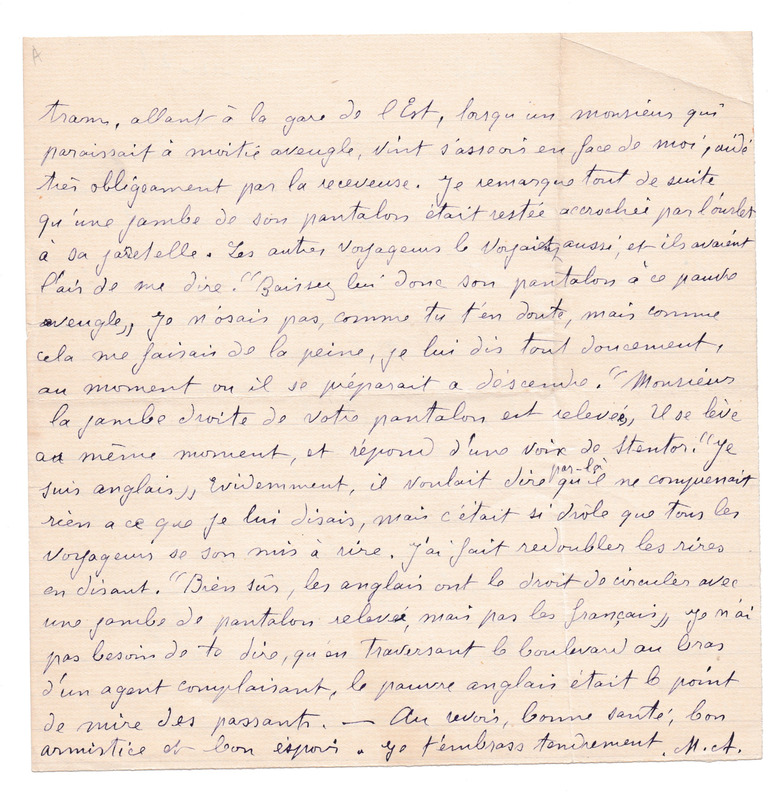 A
tram, allant à la gare de l'Est, lorsqu'un monsieur qui
paraissait à moitié aveugle, vint s'asseoir en face de moi, aidé
très obligeament par la receveuse. Je remarque tout de suite
qu'une jambe de son pantalon était restée accrochée par l'ourlet
à sa jaretelle. Les autres voyageurs le voyaient aussi, et ils avaient
l'air de me dire. "Baissez lui donc son pantalon à ce pauvre
aveugle,, Je n'osais pas, comme tu t'en doute, mais comme
cela me faisais de la peine, je lui dis tout doucement,
au moment ou il se préparait a déscendre. "Monsieur
la jambe droite de votre pantalon est relevée,, Il se lève
au même moment, et répond d'une voix de stentor. "Je
suis anglais,, Evidemment, il voulait dire par-là qu'il ne comprenait
rien a ce que je lui disais, mais c'était si drole que tous les
voyageurs se son mis à rire. J'ai fait redoubler les rires
en disant. "Bien sûr, les anglais ont le droit de circuler avec
une jambe de pantalon relevée, mais pas les français,, Je n'ai
pas besoin de te dire, qu'en traversant le boulevard au bras
d'un agent complaisant, le pauvre anglais était le point
de mire des passants. — Au revoir, bonne santé, bon
armistice et bon éspoir. Je t'embrass tendrement. M.A.